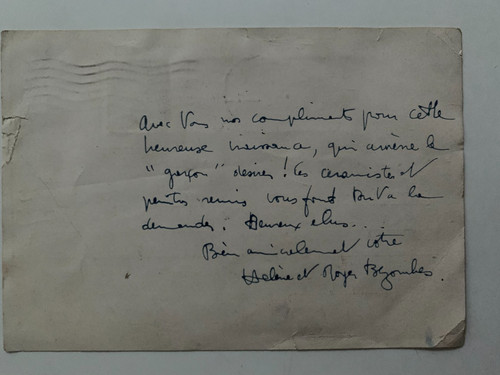 Avec tous nos compliments pour cette
heureuse naissance, qui amène le
"garçon" désiré! Les céramistes et
peintres réunis vous font tout à la
demande. Heureux élus...
Bien amicalement votre
Hélène et Roger Bezombes.